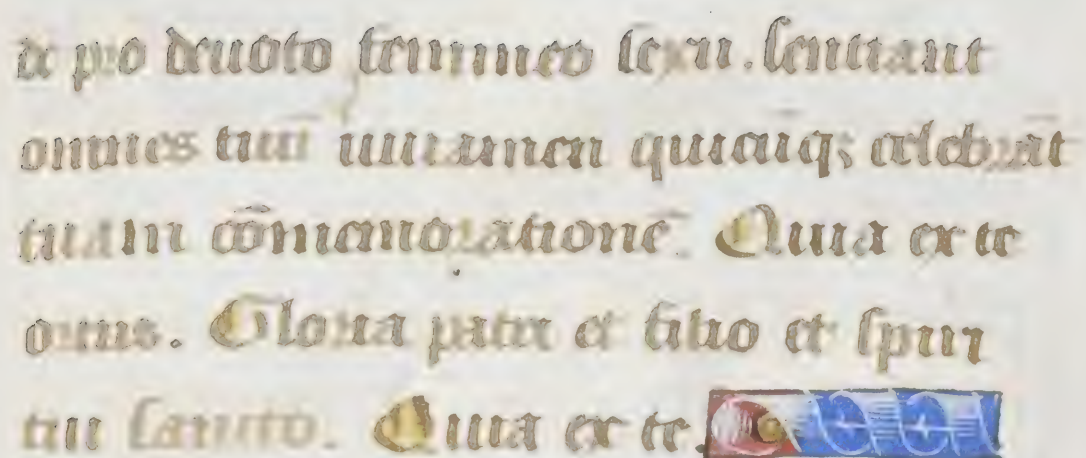 de pro deuoto femineo sexu. sentiant
omnes tuũ iuuamen quicũq; celebrãt
tuam cõmemorationẽ. Quia ex te
ortus. Gloria patri et filio et spiri
tui sancto. Quia ex te.